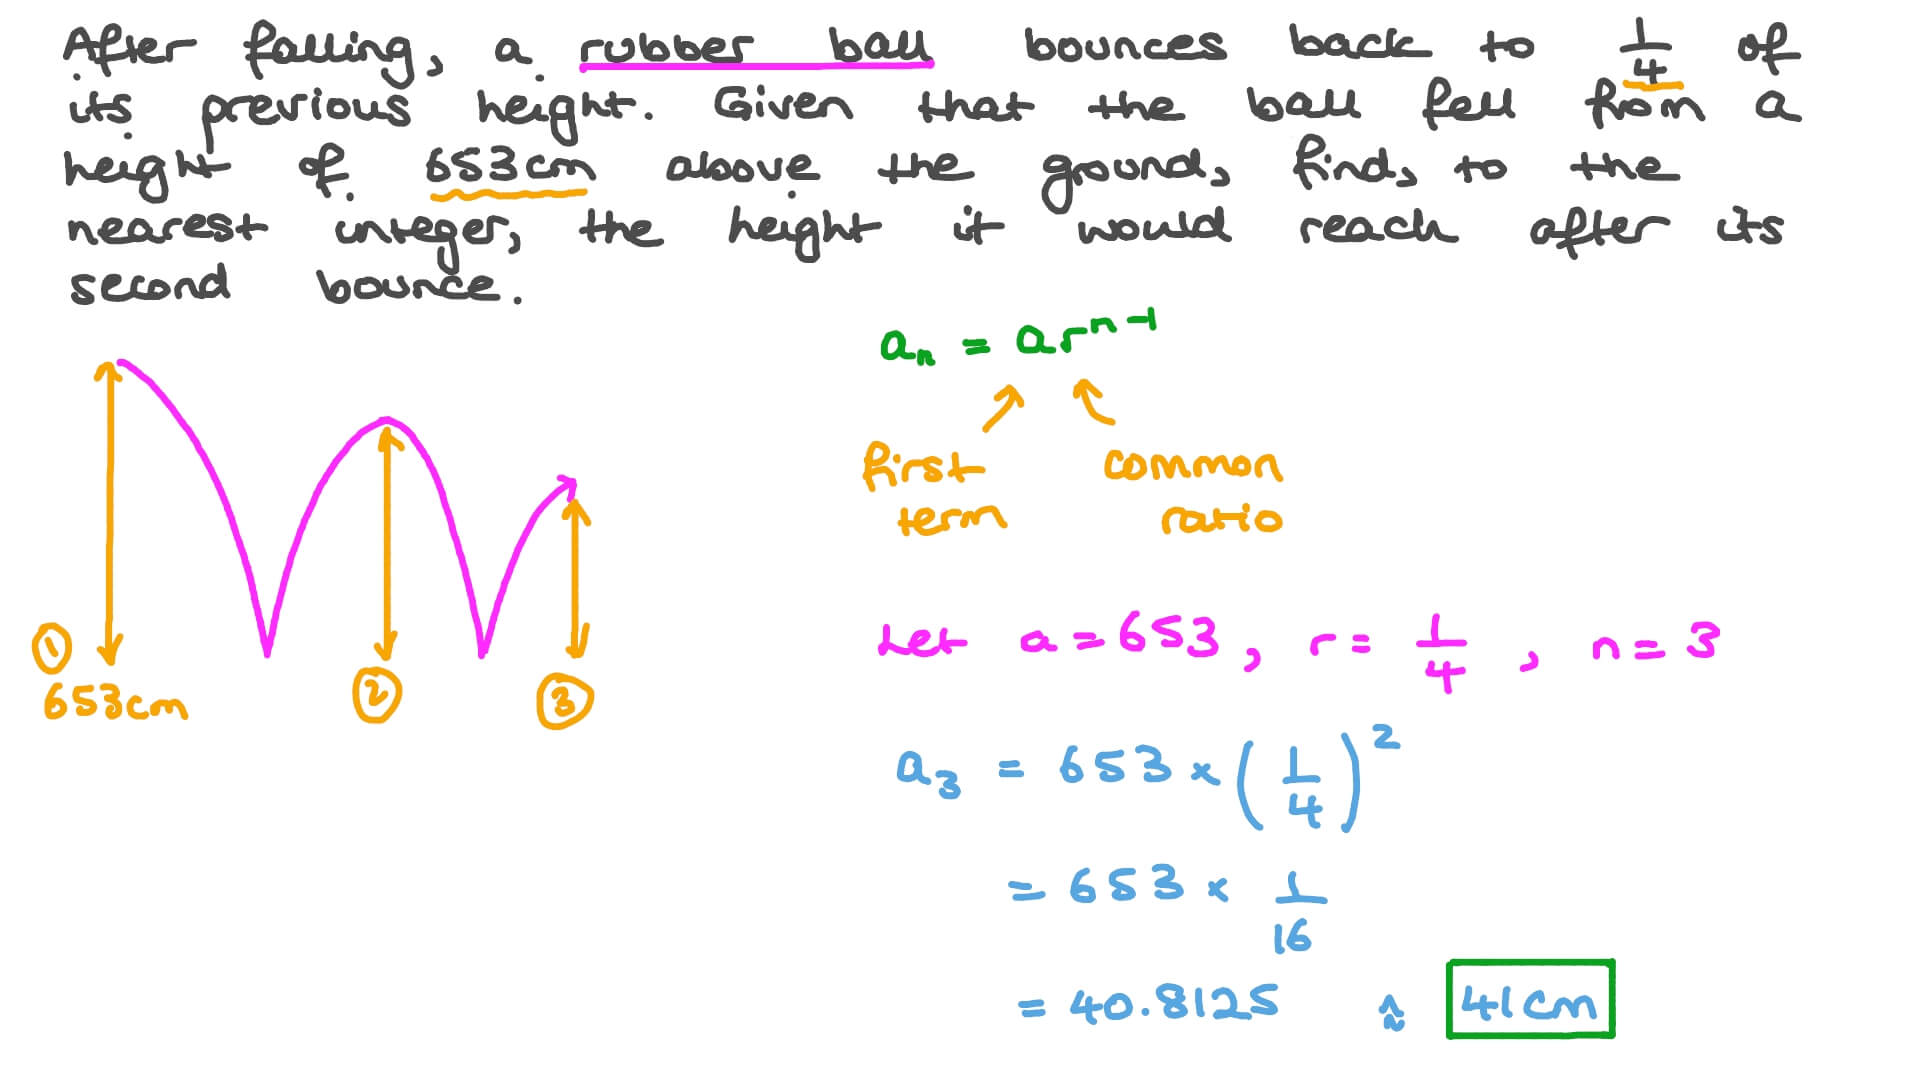 After falling, a rubber ball bounces back to 1/4 of
its previous height. Given that the ball fell from a
height of 653cm above the ground, find, to the
nearest integer, the height it would reach after its
second bounce.
aₙ = arⁿ⁻¹
first term
common ratio
① 653cm
②
③
Let a = 653, r = 1/4, n = 3
a₃ = 653 × (1/4)²
= 653 × 1/16
= 40.8125 ≈ 41cm